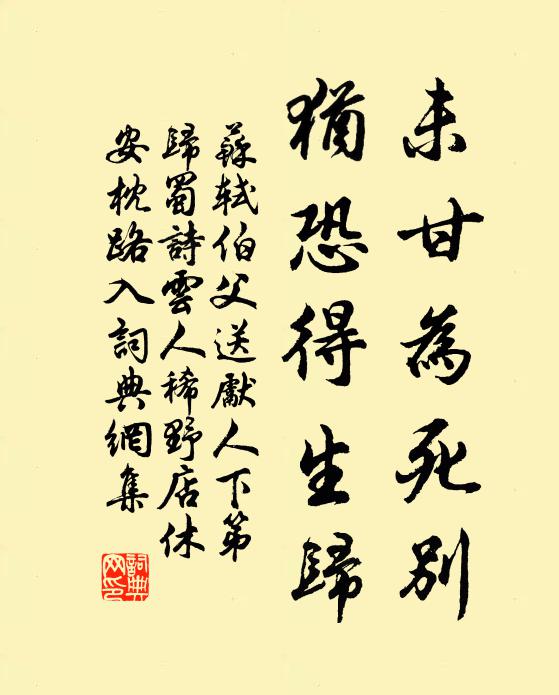 未甘為死別
猶恐得生歸
蘇軾伯父送獻人下第
歸蜀詩雲人稀野店休
安枕路入詞典網集
詞典網印